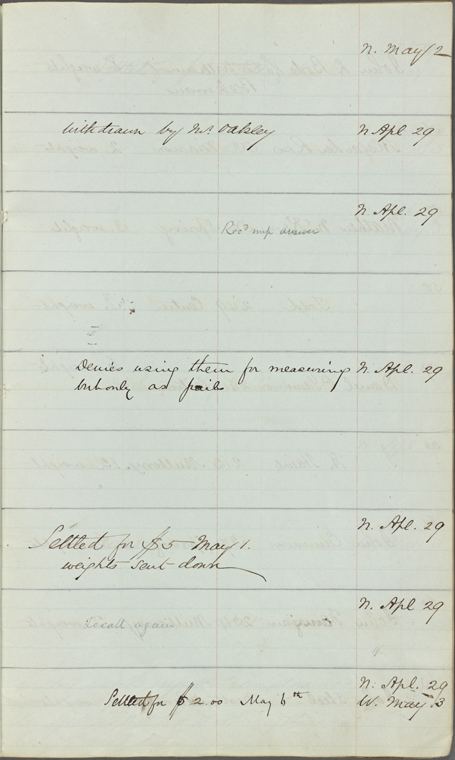 N. May 2
Withdrawn by Mr Oakley N Apl 29
N Apl. 29
Recd answer
Denies using them for measuring N Apl. 29
but only as pails
N. Apl. 29
Settled for $5 May 1.
weights sent down
N. Apl 29
again
N. Apl. 29
Settled for $2.00 May 6th W. May 3